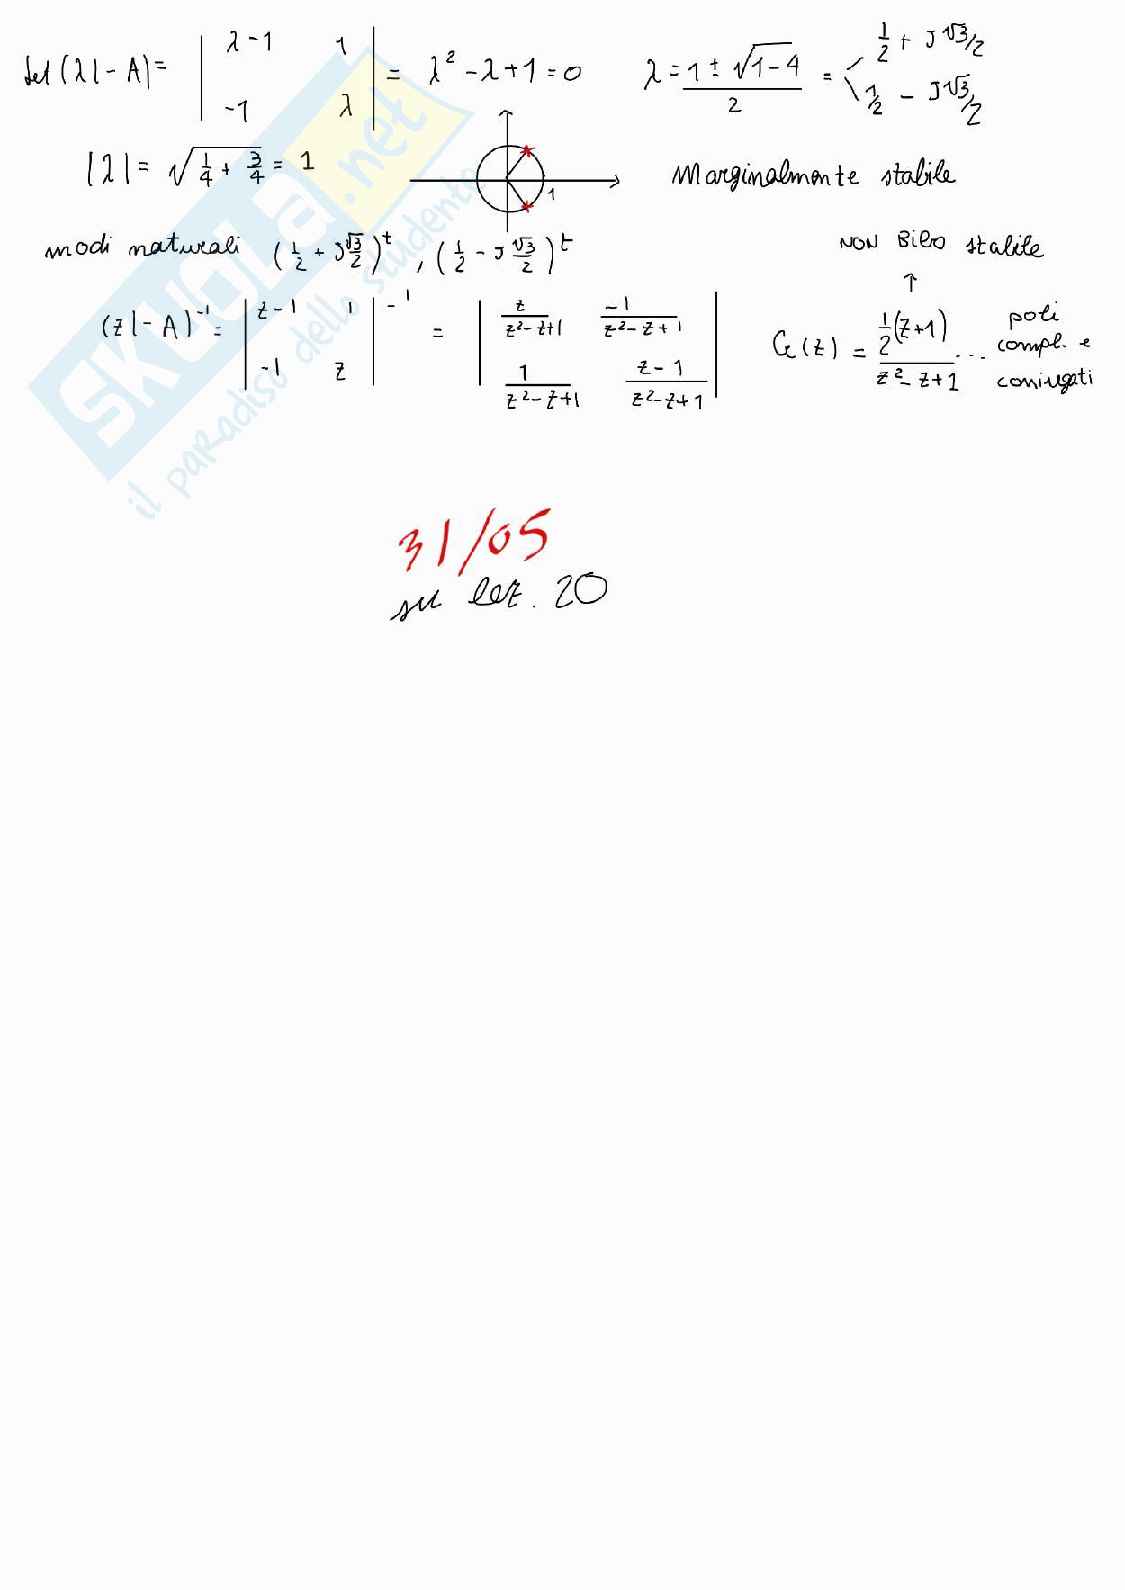 det(λI-A)= | λ-1 1 ; -1 λ | = λ² - λ + 1 = 0   λ = (1 ± √(1-4))/2 = < 1/2 + J√3/2 ; 1/2 - J√3/2
|λ| = √(1/4 + 3/4) = 1   1   Marginalmente stabile
modi naturali (1/2 + J√3/2)^t , (1/2 - J√3/2)^t   NON BIBO stabile
↑
(zI-A)^-1 = | z-1 1 ; -1 z |^-1 = | z/(z²-z+1) -1/(z²-z+1) ; 1/(z²-z+1) (z-1)/(z²-z+1) |   G(z) = 1/2(z+1)/(z²-z+1) ...
poli
compl. e
coniugati
31/05
su lez. 20
SKUOLA.net
il paradiso dello studente